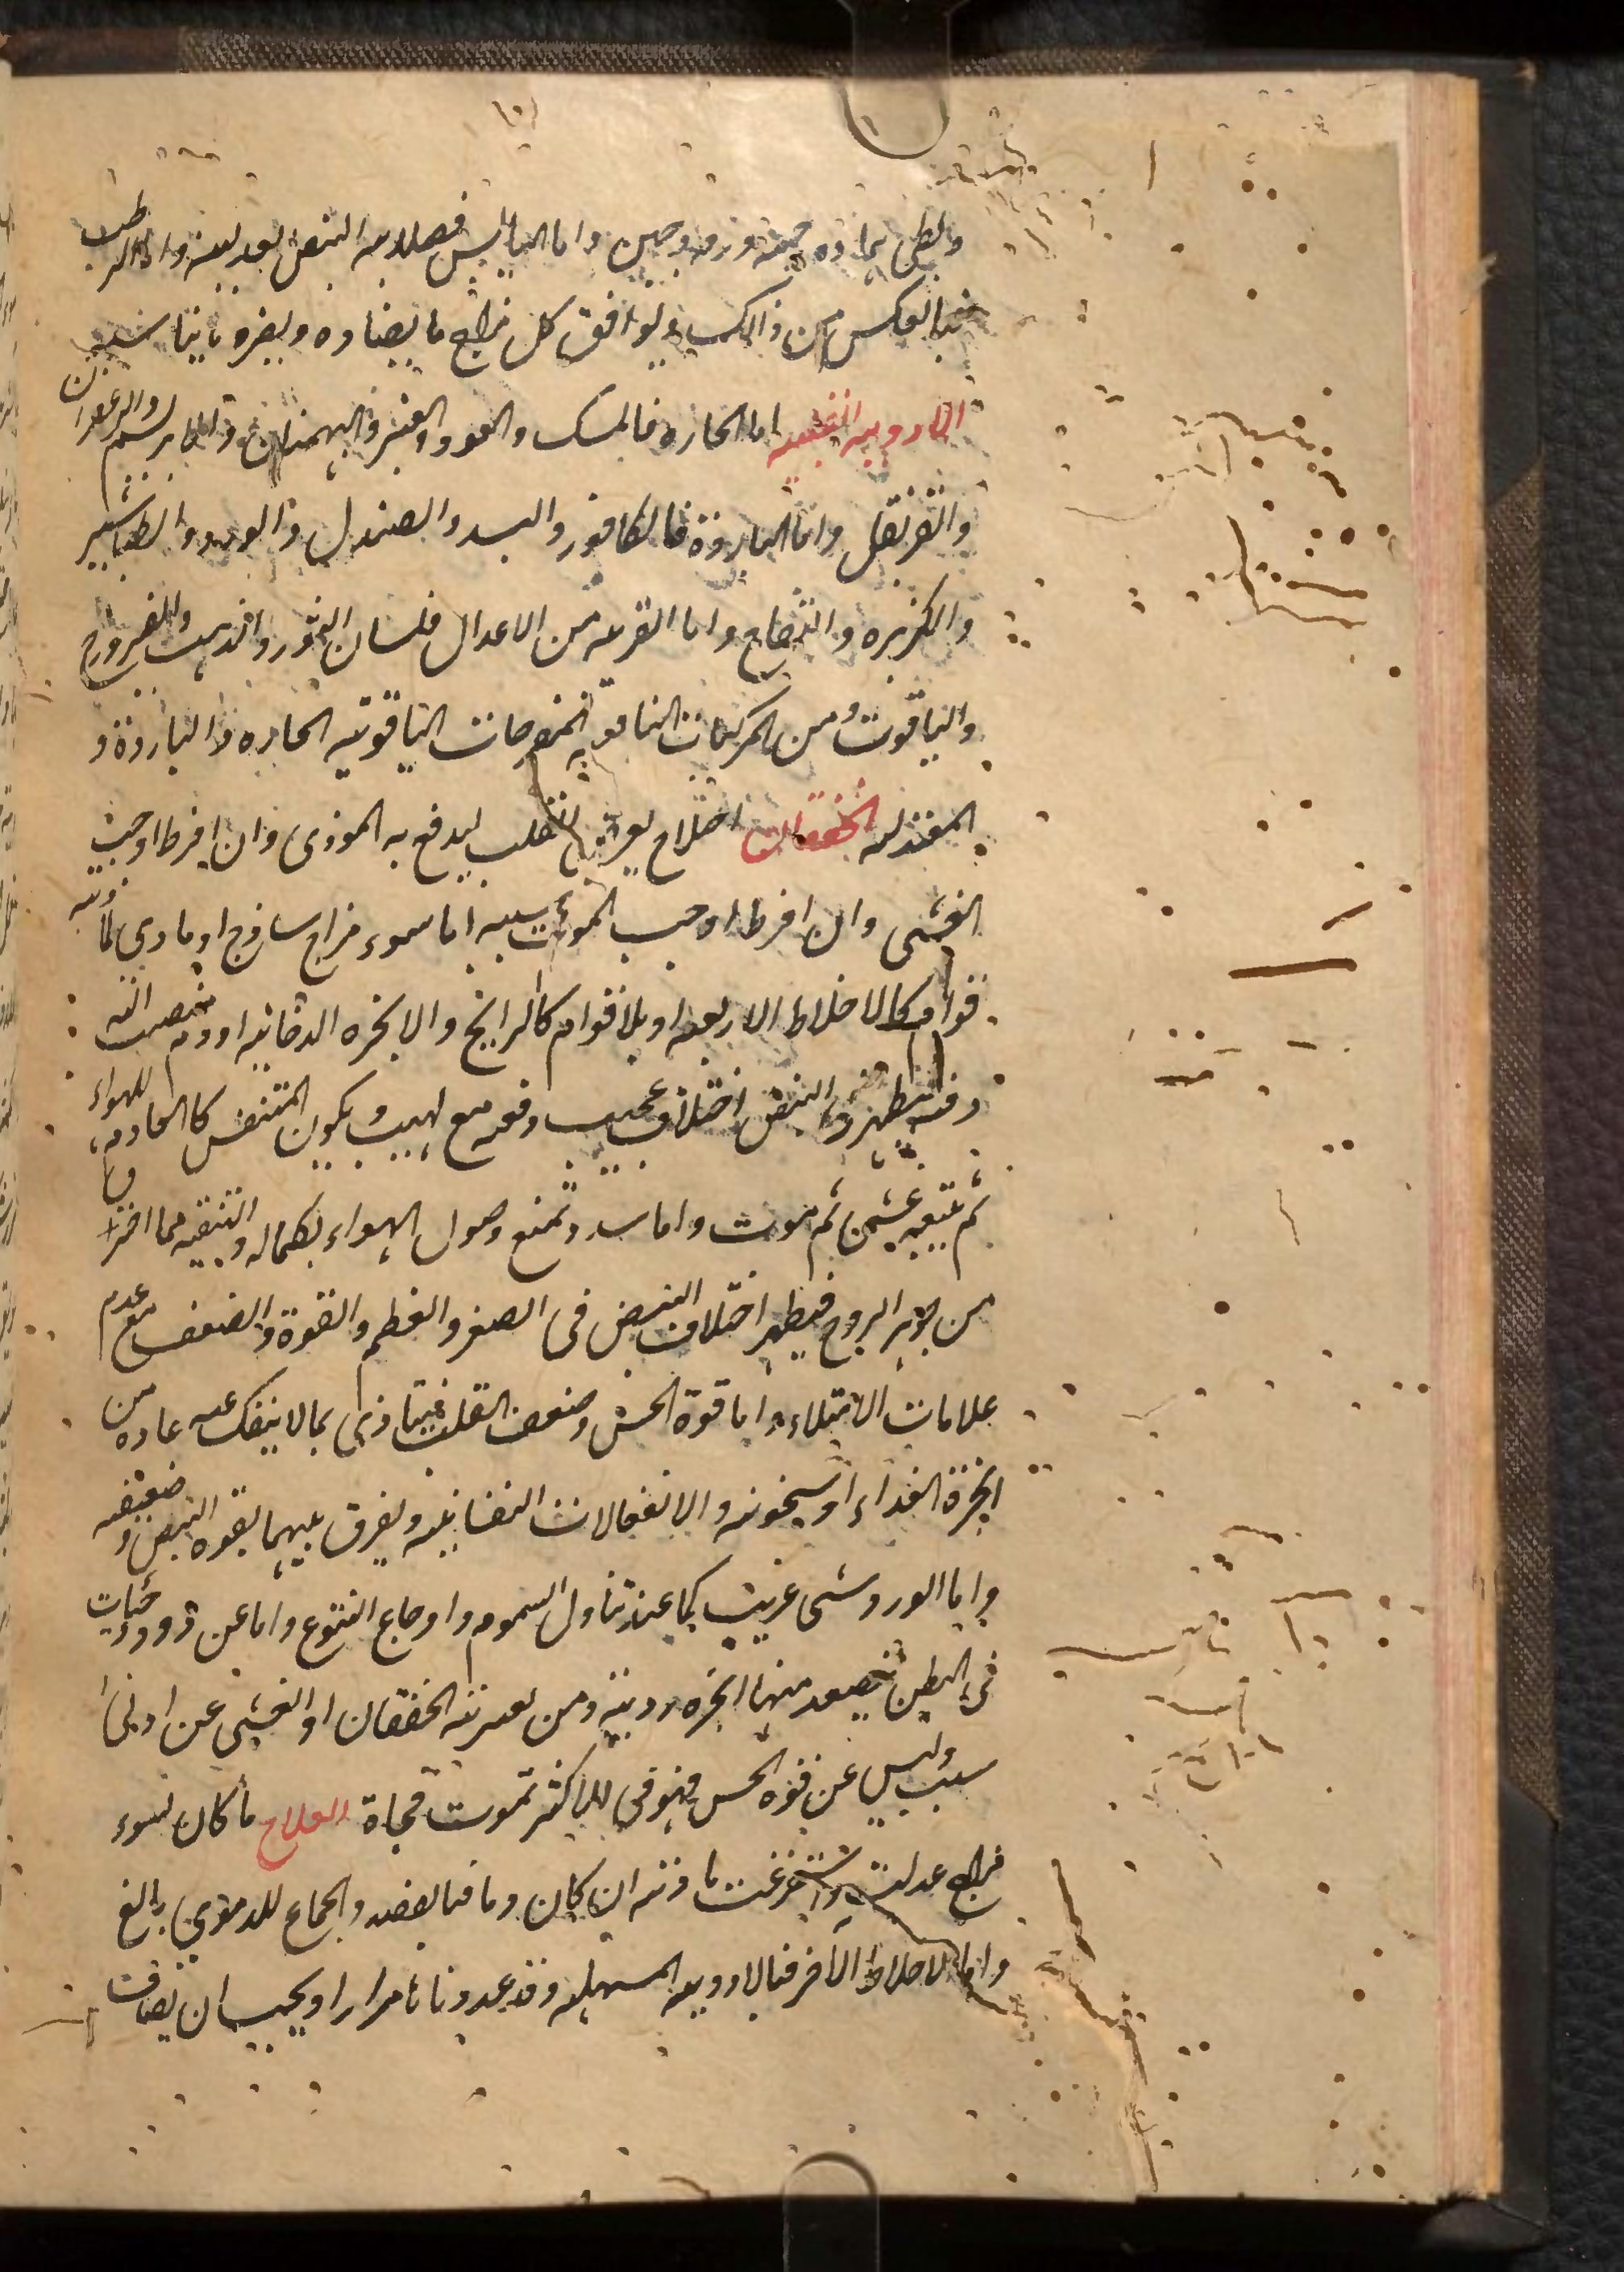 وبطئ بماذه حمقه ورد وجبن واما اليابس فصلابه النبض بعد لينه واما الرطب
فبالعكس من ذالك ويوافق كل مزاج ما يضاده ويضره ما يناسبه
الادويه القلبيه اما الحاره فالمسك والعود والعنبر والبهمنان والابريسم والزعفران
والقرنفل واما البارده فالكافور والبسد والصندل والورد والطباشير
والكزبره والتفاح واما القريبه من الاعتدال فلسان الثور والذهب والفيروزج
والياقوت ومن المركبات النافعه المفرحات الياقوتيه الحاره والبارده و
المعتدله الخفقان اختلاج يعرض للقلب ليدفع به الموذى وان افرط اوجب
الغشى وان افرط اوجب الموت سببه اما سوء مزاج ساذج او مادي لمادته
قوام كالاخلاط الاربعه او بلا قوام كالرايح والابخره الدخانيه او ورم فتنصب اليه
دفعة فيظهر فى النبض اختلاف عجيب دفعه مع لهيب ويكون المتنفس كالعادم للهواء
ثم يتبعه غشى ثم موت واما سدد تمنع وصول الهواء بكماله والتنقيه مما احترق
من جوهر الروح فيظهر اختلاف النبض فى الصغر والعظم والقوة والضعف مع عدم
علامات الامتلاء واما قوة الحس وضعف القلب فيتاذى بما لا ينفك عنه عاده من
ابخرة الغذاء او سخونته والانفعالات النفسانيه ويفرق بينهما بقوه النبض وضعفه
واما الورود شى غريب كما عند تناول السموم واوجاع اللسوع واما عن دود وحيات
فى البطن تتصعد منها ابخره رديئه ومن يعتريه الخفقان او الغشى عن ادنى
سبب وليس عن قوه الحس فهو فى الاكثر يموت فجاة العلاج ما كان لسوء
مزاج عدلت واستفرغت مادته ان كان وما فبالفصد والحجامه للدموي بالغ
واما الاخلاط الآخر فبالادويه المسهله وقد عددناها مرارا ويجب ان يضاف